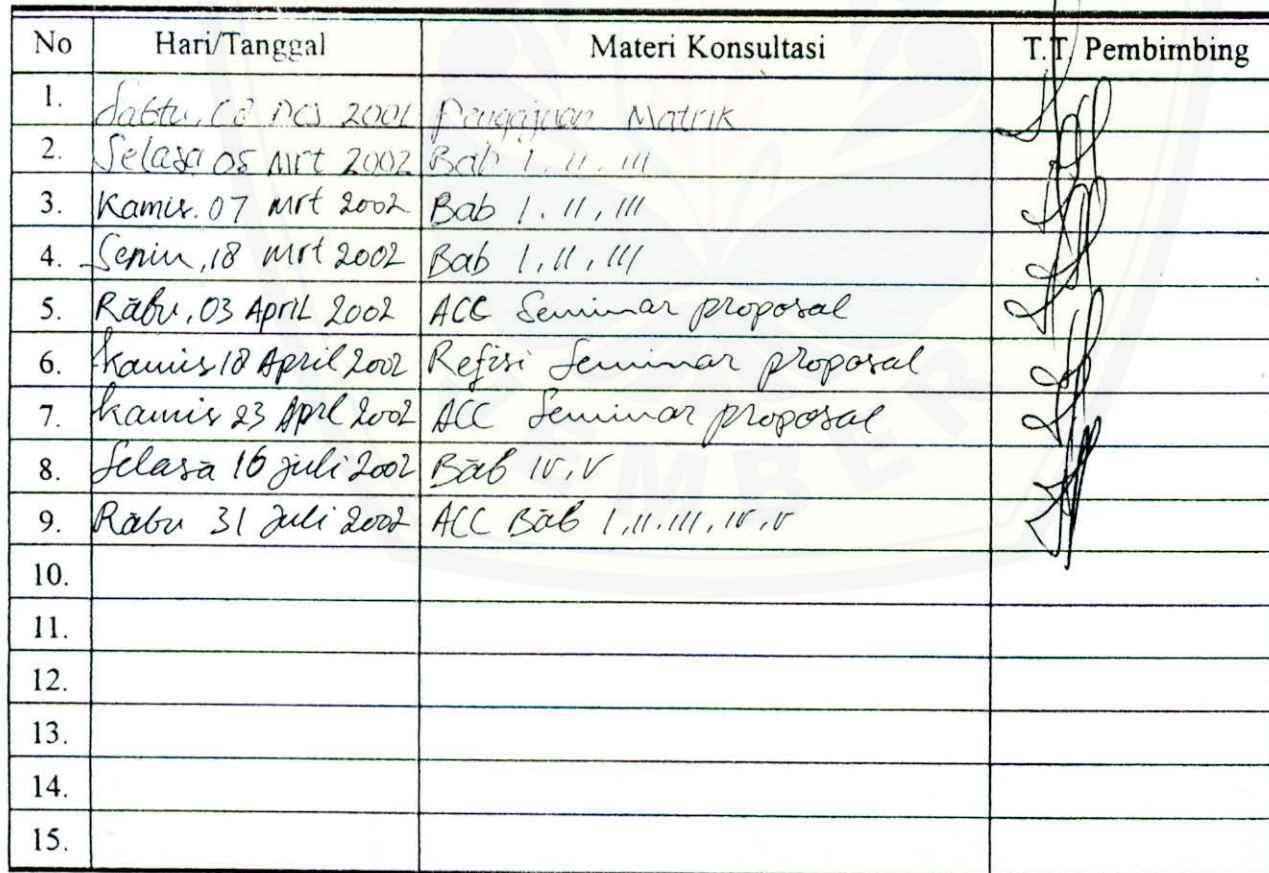 No Hari/Tanggal Materi Konsultasi T.T. Pembimbing
1. Sabtu, 08 Des 2001 Pengajuan Matrik
2. Selasa 05 Mrt 2002 Bab I, II, III
3. Kamis. 07 Mrt 2002 Bab I. II, III
4. Senin, 18 Mrt 2002 Bab I, II, III
5. Rabu, 03 April 2002 ACC Seminar proposal
6. Kamis 18 April 2002 Refisi Seminar proposal
7. Kamis 23 Aprl 2002 ACC Seminar proposal
8. Selasa 16 Juli 2002 Bab IV, V
9. Rabu 31 Juli 2002 ACC Bab I, II. III, IV, V
10.
11.
12.
13.
14.
15.